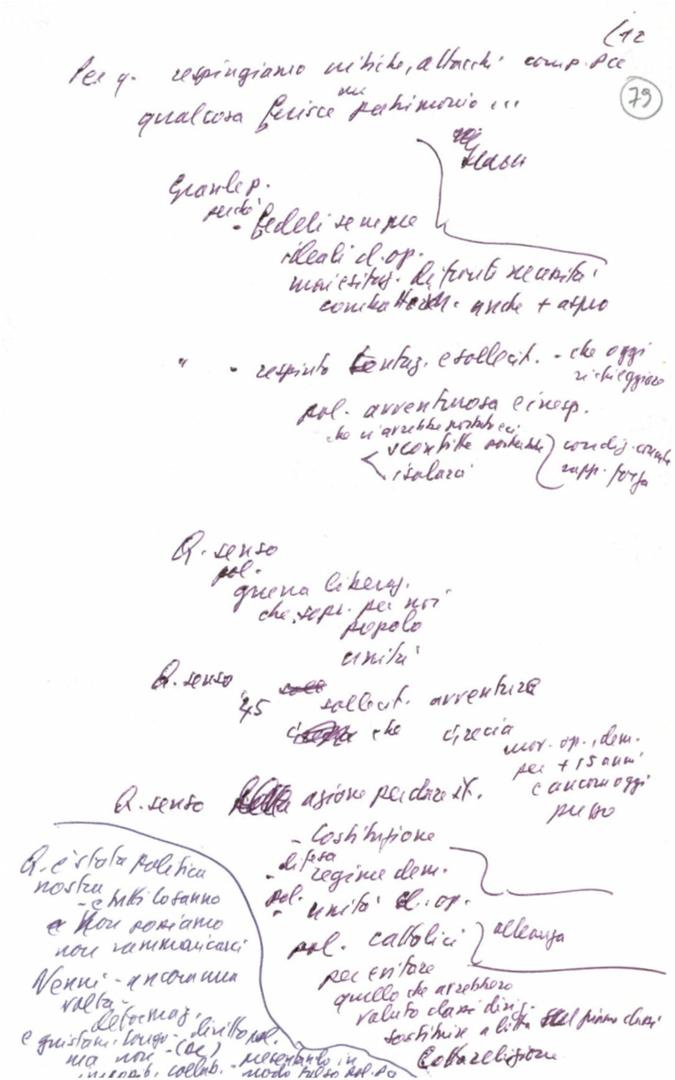 (12
79
Per q. respingiamo critiche, attacchi comp. PCC
qualcosa ferisce patrimonio ...
Grande p.
perché
- fedeli sempre
ideali cl. op.
mai esitaz. di fronti necessità
combatterli. anche + aspro
" - respinto tentaz. e sollecit. - che oggi
riecheggiano
pol. avventurosa e inesp.
che ci avrebbe portato a
< sconfitte
isolarci
condiz. concrete
rapp. forza
Q. senso
pol.
guerra liberaz.
che sopr. per noi
popolo
unità
Q. senso
'45 sollecit. avventura
che Grecia
mov. op., dem.
per + 15 anni
e ancora oggi
Q. senso azione per dare It.
- Costituzione
- difesa
regime dem.
pol.
- unità cl. op.
pol. cattolici } alleanza
per evitare
quello che avrebbero
voluto classi dirig.
sostituire a lotta sul piano classi
lotta religione
Q. è stata politica
nostra
- e tutti lo sanno
e non possiamo
non rammaricarci
Nenni - ancora una
volta -
deformaz.
e giustam. Longo - diritto pol.
ma non
impossib. collab. - presentando in
modo falso pol.